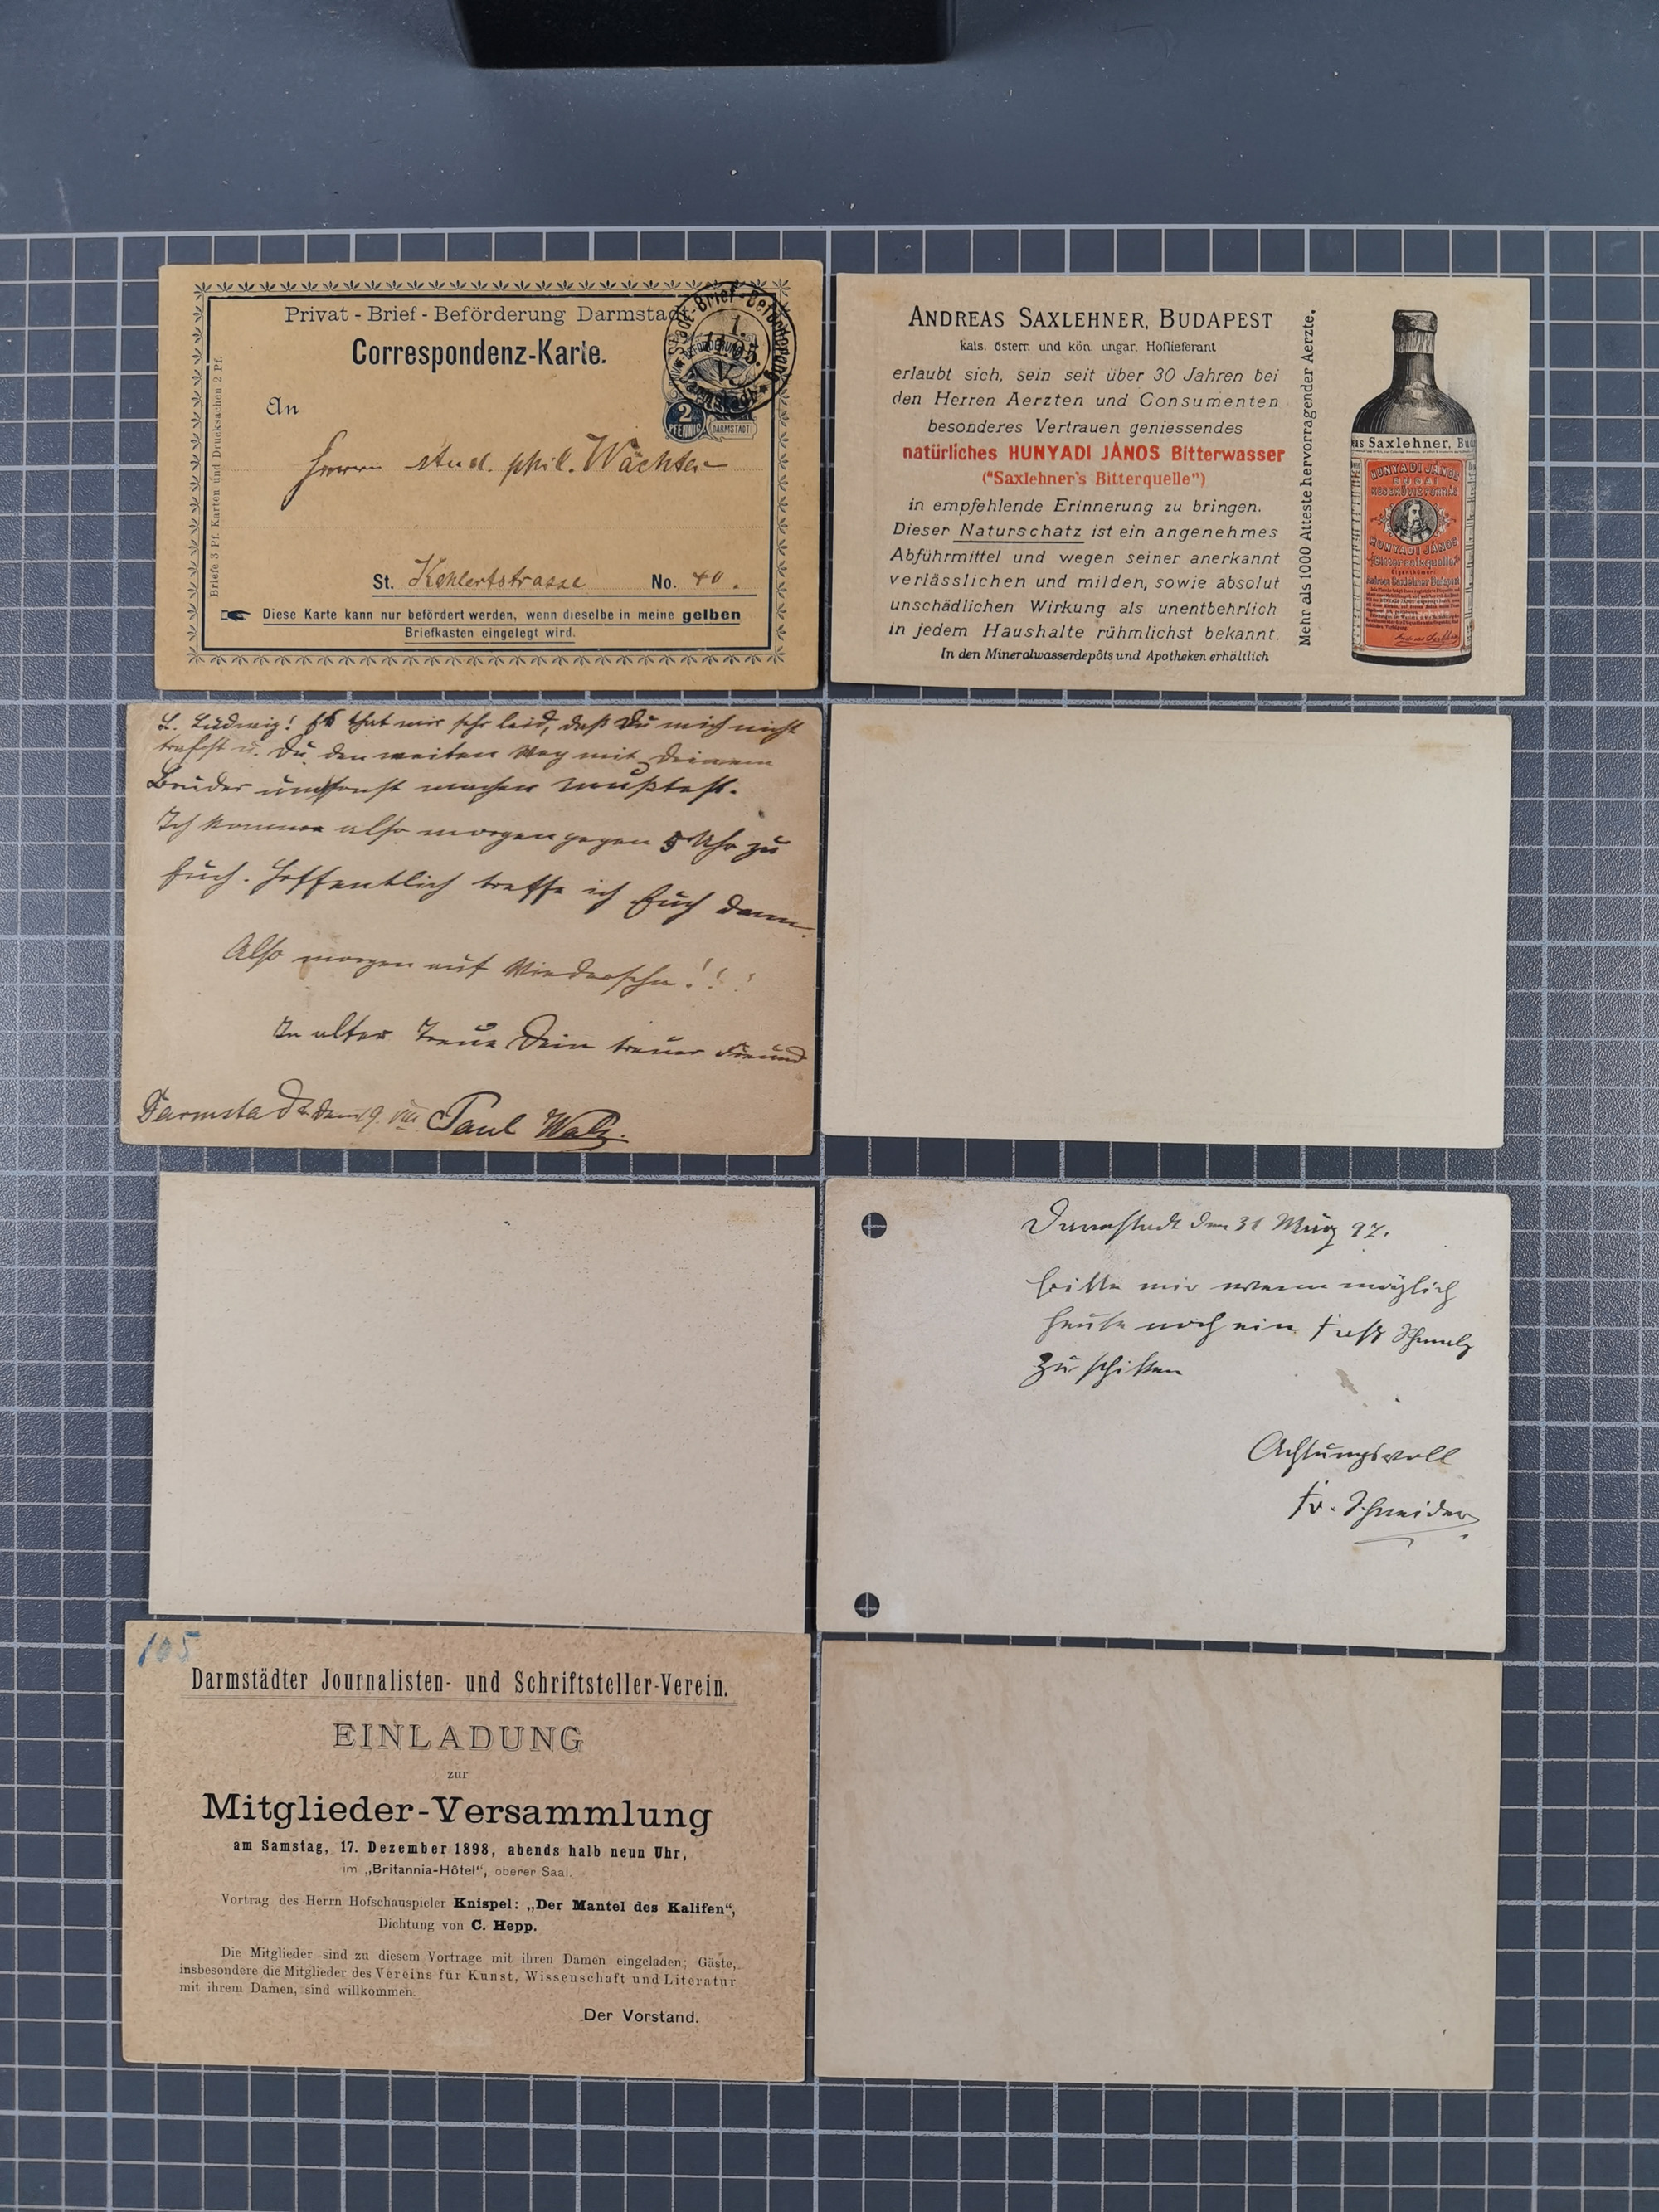 Privat - Brief - Beförderung Darmstadt
Correspondenz-Karte.
An
Herrn stud. phil. Wächter
St. Kahlertstrasse No. 40.
Diese Karte kann nur befördert werden, wenn dieselbe in meine gelben
Briefkasten eingelegt wird.
Briefe 3 Pf. Karten und Drucksachen 2 Pf.
Stadt-Brief-Beförderung
Darmstadt
2
PFENNIG
DARMSTADT
ANDREAS SAXLEHNER, BUDAPEST
kais. österr. und kön. ungar. Hoflieferant
erlaubt sich, sein seit über 30 Jahren bei
den Herren Aerzten und Consumenten
besonderes Vertrauen geniessendes
natürliches HUNYADI JÁNOS Bitterwasser
("Saxlehner's Bitterquelle")
in empfehlende Erinnerung zu bringen.
Dieser Naturschatz ist ein angenehmes
Abführmittel und wegen seiner anerkannt
verlässlichen und milden, sowie absolut
unschädlichen Wirkung als unentbehrlich
in jedem Haushalte rühmlichst bekannt.
In den Mineralwasserdepôts und Apotheken erhältlich
Mehr als 1000 Atteste hervorragender Aerzte.
as Saxlehner, Bud
HUNYADI JÁNOS
HUNYADI JÁNOS
L. Ludwig! Es that mir sehr leid, daß Du mich nicht
trafst u. Du den weiten Weg mit Deinem
Bruder umsonst machen mußtest.
Ich komme also morgen gegen 5 Uhr zu
Euch. Hoffentlich treffe ich Euch dann.
Also morgen auf Wiedersehn!!!
In alter Treue Dein treuer Freund
Darmstadt den 9. VIII Paul Walz.
Darmstadt den 31 März 97.
Bitte mir wenn möglich
heute noch ein Schmalz
zu schicken
Achtungsvoll
Fr. Schneider
105
Darmstädter Journalisten- und Schriftsteller-Verein.
EINLADUNG
zur
Mitglieder-Versammlung
am Samstag, 17. Dezember 1898, abends halb neun Uhr,
im „Britannia-Hôtel", oberer Saal.
Vortrag des Herrn Hofschauspieler Knispel: „Der Mantel des Kalifen",
Dichtung von C. Hepp.
Die Mitglieder sind zu diesem Vortrage mit ihren Damen eingeladen; Gäste,
insbesondere die Mitglieder des Vereins für Kunst, Wissenschaft und Literatur
mit ihrem Damen, sind willkommen.
Der Vorstand.